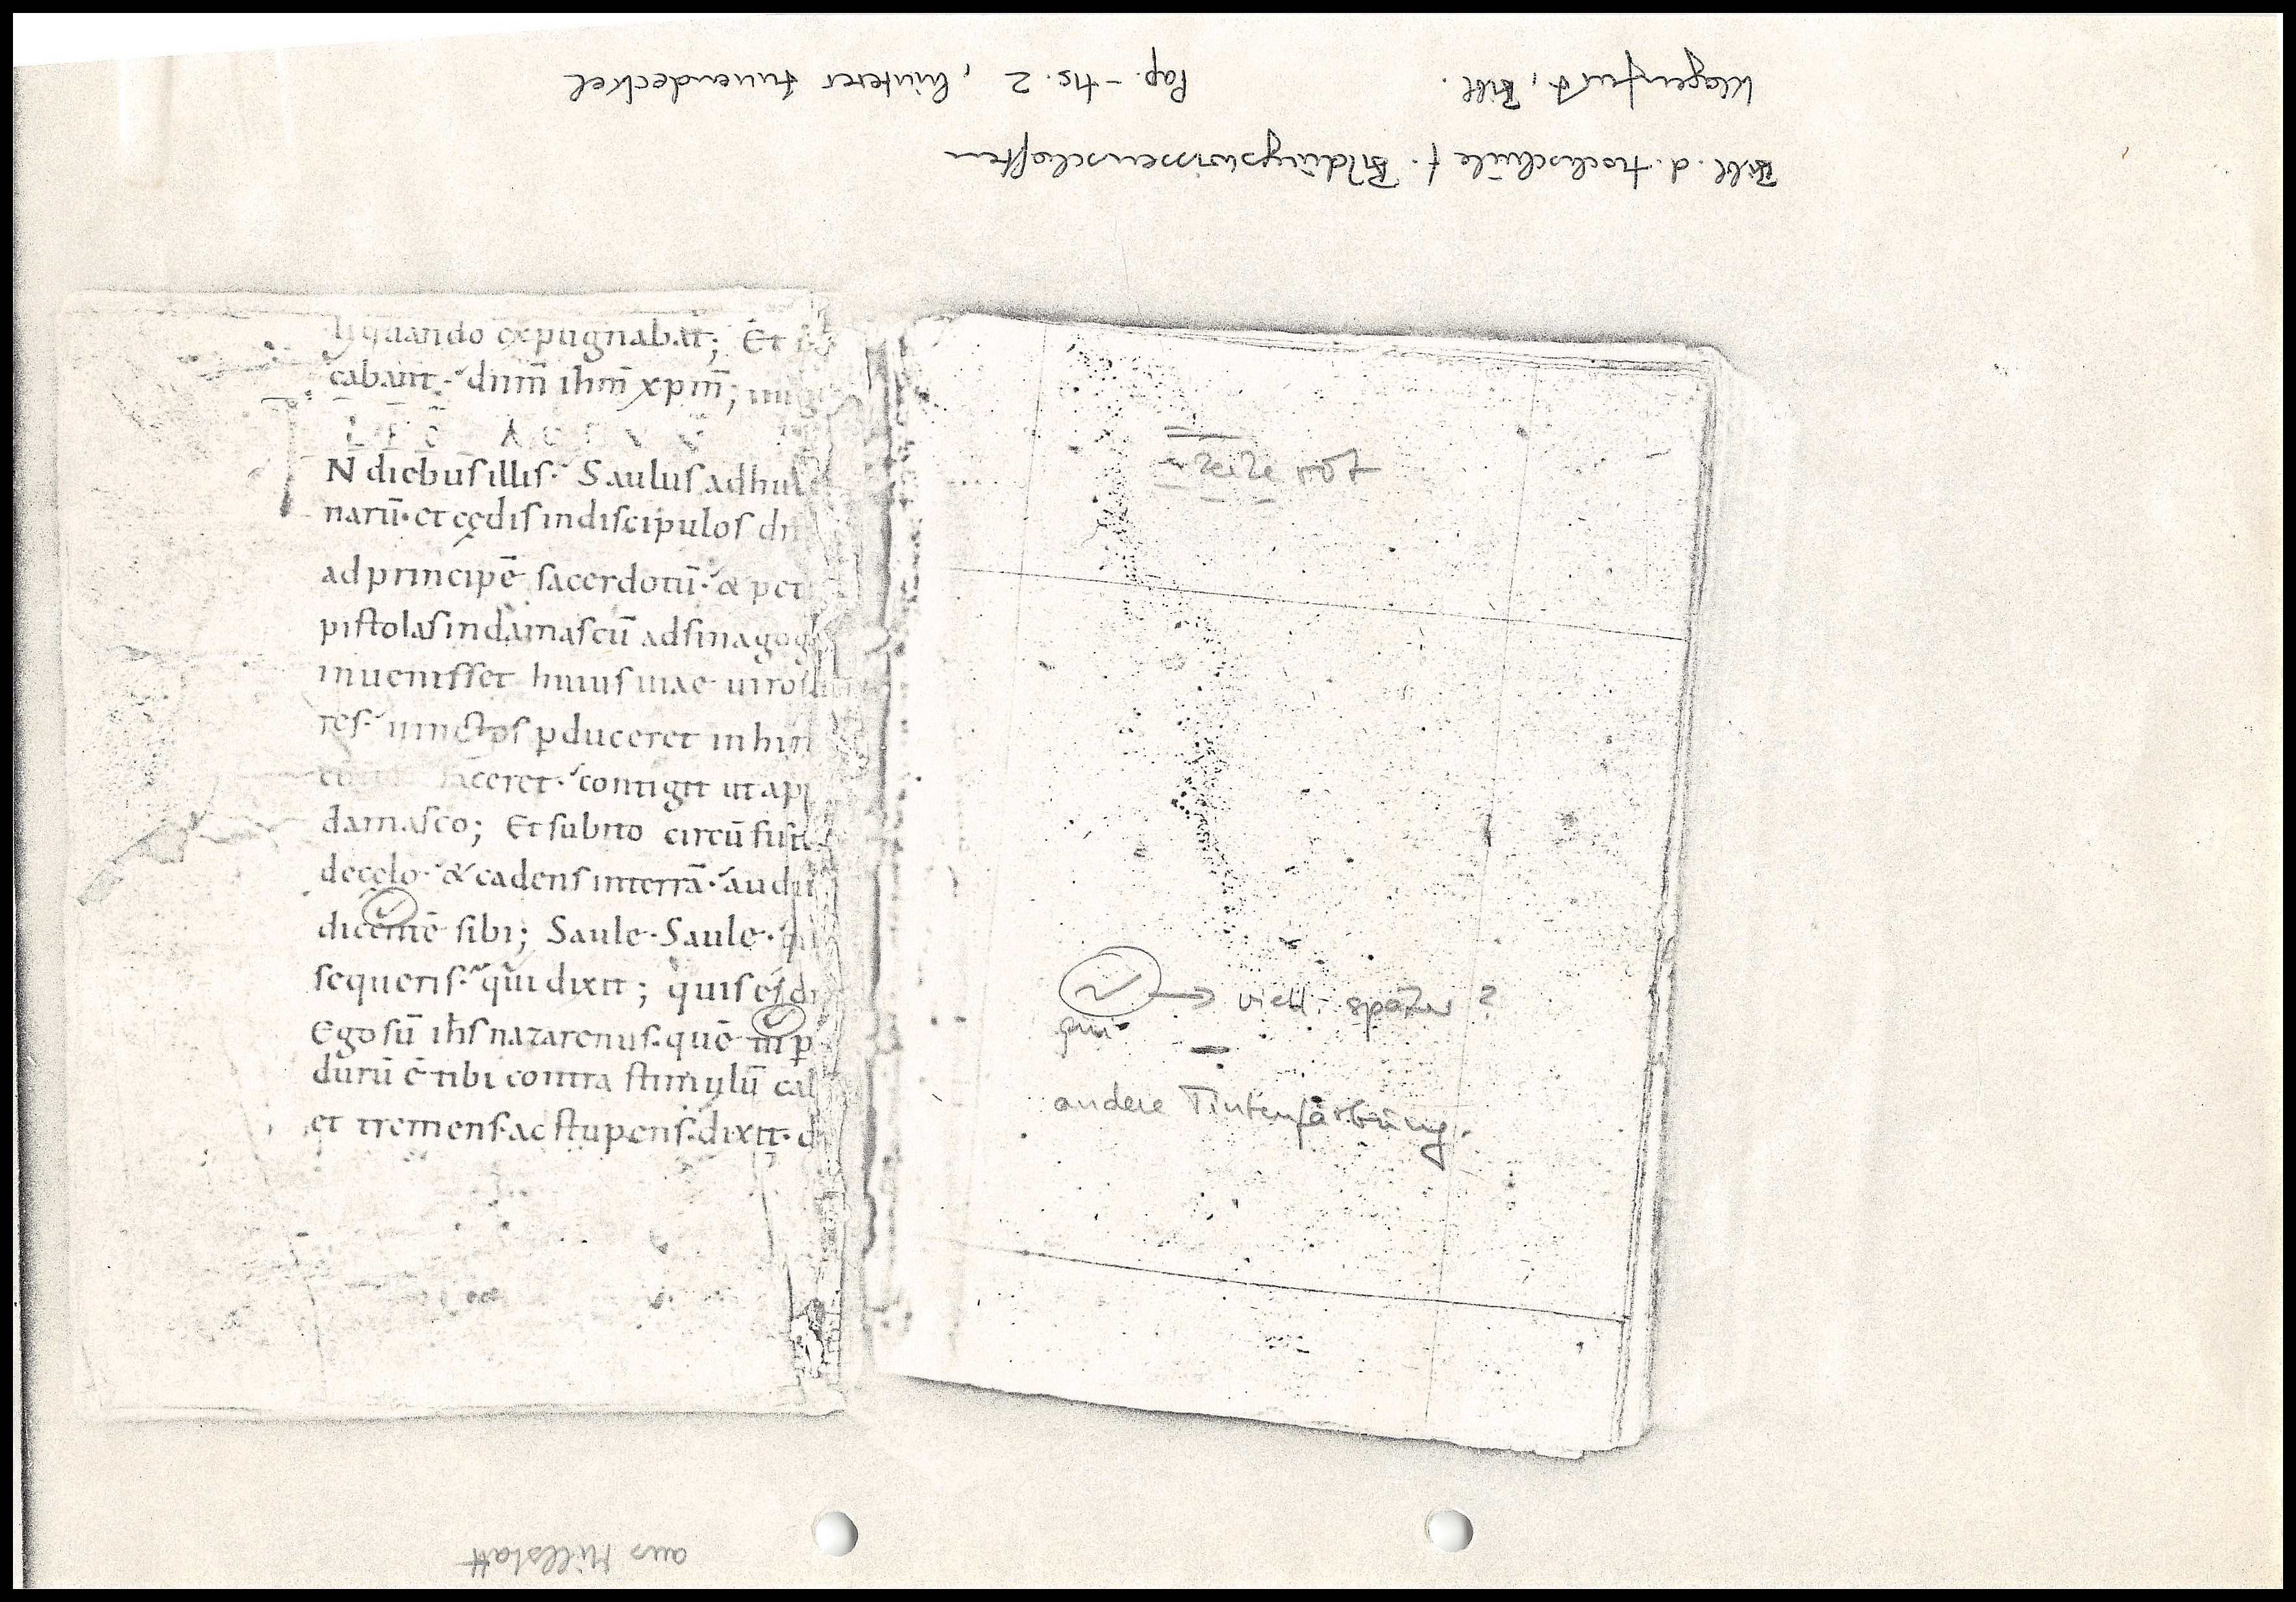 Klagenfurt, Bibl. Pap.-Hs. 2, hinterer Innendeckel
Bibl. d. Hochschule f. Bildungswissenschaften
quando expugnabat; Et
cabant. dnm̄ ihm̄ xpm̄;
LEC ACTVV
IN diebuſ illiſ. Sauluſ adhuc
narū. et cędiſ in diſcipuloſ dn
ad principē ſacerdotū. & pet
piſtolaſ in damaſcū ad ſinagog
inueniſſet huiuſ uiae uiroſ
reſ. uinctoſ ꝑduceret in hir
faceret. contigit ut app
damaſco; Et ſubito circūfulſ
de cęlo. & cadenſ in terrā. audi
dicentē ſibi; Saule. Saule.
ſequeriſ. qui dixit; quiſ eſ d
Ego ſū ihſ nazarenuſ. quē tu ꝑ
durū ē tibi contra ſtimulū cal
et tremenſ. ac ſtupenſ. dixit. d
Zeile rot
→ viell. später?
qui
andere Tintenfärbung.
aus Millstatt